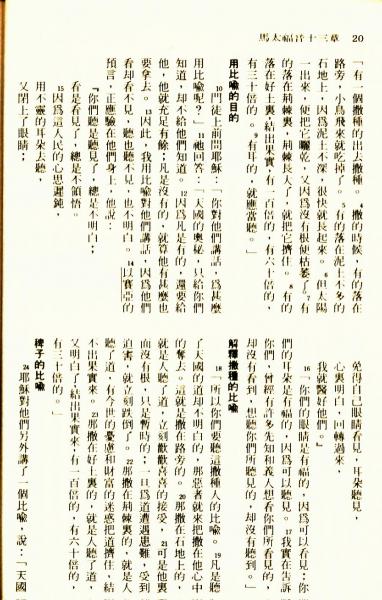 馬太福音十三章 20
「有一個撒種的出去撒種。4撒的時候,有的落在
路旁,小鳥飛來就吃掉了。5有的落在泥土不多的
石地上,因爲泥土不深,很快就長起來。6但太陽
一出來,便把它曬乾,又因爲沒有根便枯萎了。7有
的落在荊棘裏,荊棘長大了,就把它擠住。8有的
落在好土裏,結出果實,有一百倍的,有六十倍的,
有三十倍的。9有耳的,就應當聽。」
用比喻的目的
10門徒上前問耶穌:「你對他們講話,爲甚麼
用比喻呢?」11祂回答:「天國的奧秘,只給你們
知道,却不給他們知道。12因爲凡是有的,還要給
他,他就充足有餘;凡是沒有的,就算他有甚麼也
要拿去。13因此,我用比喻對他們講話,因爲他們
看却看不見,聽也聽不見,也不明白。14以賽亞的
預言,正應驗在他們身上,他說:
『你們聽是聽見了,總是不明白;
看是看見了,總是不領悟。
15因爲這人民的心思遲鈍,
用不靈的耳朵去聽,
又閉上了眼睛;
免得自己眼睛看見,耳朵聽見,
心裏明白,回轉過來,
我就醫好他們。』
16「你們的眼睛是有福的,因爲可以看見;你
們的耳朵是有福的,因爲可以聽見。17我實在告訴
你們,曾經有許多先知和義人想看你們所看見的,
却沒有看到,想聽你們所聽見的,却沒有聽到。」
解釋撒種的比喻
18「所以你們要聽這撒種人的比喻。19凡是聽
了天國的道却不明白的,那惡者就來把撒在他心中
的奪去。這就是撒在路旁的。20那撒在石地上的,
就是人聽了道,立刻歡歡喜喜的接受,21可是他裏
面沒有根,只是暫時的;一旦爲道遭遇患難,受到
迫害,就立刻跌倒了。22那撒在荊棘裏的,就是人
聽了道,有今世的憂慮和財富的迷惑把道擠住,結
不出果實來。23那撒在好土裏的,就是人聽了道,
又明白了,結出果實來,有一百倍的,有六十倍的,
有三十倍的。」
稗子的比喻
24耶穌對他們另外講了一個比喻,說:「天國